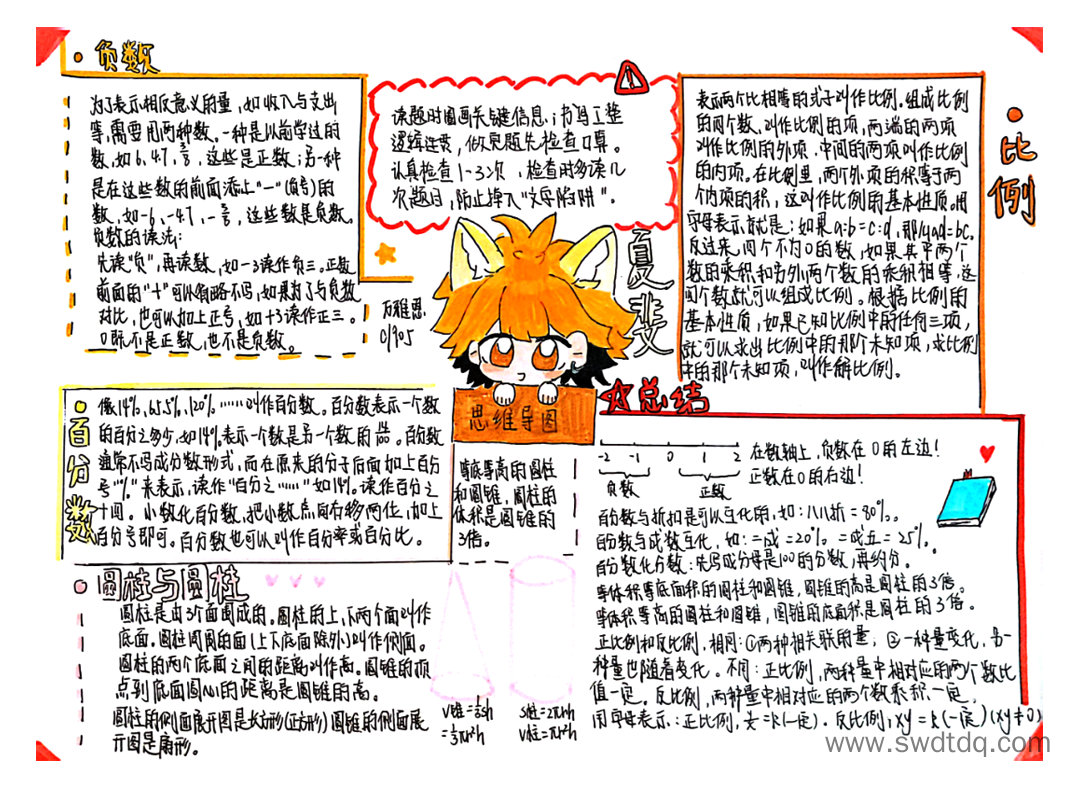 负数
为了表示相反意义的量，如收入与支出
等，需要用两种数。一种是以前学过的
数，如6,47,，这些是正数；另一种
是在这些数的前面添上"一"(负号)的
数，如-6，-47，-，这些数是负数。
负数的读法：
先读"负"，再读数，如-3读作负三。正数
前面的"+"可以省略不写，如果为了与负数
对比，也可以加上正号，如+3读作正三。
0既不是正数，也不是负数。
读题时圈画关键信息，书写工整
逻辑连贯，做完题先检查口算。
认真检查1-3次，检查时多读几
次题目，防止掉入"文字陷阱"。
比例
表示两个比相等的式子叫作比例。组成比例
的四个数，叫作比例的项，两端的两项
叫作比例的外项，中间的两项叫作比例
的内项。在比例里，两个外项的积等于两
个内项的积，这叫作比例的基本性质。用
字母表示就是：如果a:b=c:d，那么ad=bc。
反过来，四个不为0的数，如果其中两个
数的乘积和另外两个数的乘积相等，这
四个数就可以组成比例。根据比例的
基本性质，如果已知比例中的任何三项，
就可以求出比例中的那个未知项，求比例
中的那个未知项，叫作解比例。
夏
01905
思维导图
百分数
像14%，65.5%，120%……叫作百分数。百分数表示一个数
的百分之多少，如14%表示一个数是另一个数的。百分数
通常不写成分数形式，而在原来的分子后面加上百分
号"%"来表示，读作"百分之……"如14%。读作百分之
十四。小数化百分数，把小数点向右移两位，加上
百分号即可。百分数也可以叫作百分率或百分比。
等底等高的圆柱
和圆锥，圆柱的
体积是圆锥的
3倍。
总结
-2 -1 0 1 2
负数 正数
在数轴上，负数在0的左边！
正数在0的右边！
百分数与折扣是可以互化的，如：八折=80%。
百分数与成数互化，如：二成=20% 二成五=25%。
百分数化分数：先写成分母是100的分数，再约分。
等体积等底面积的圆柱和圆锥，圆锥的高是圆柱的3倍。
等体积等高的圆柱和圆锥，圆锥的底面积是圆柱的3倍。
正比例和反比例，相同：①两种相关联的量，②一种量变化，另一
种量也随着变化。不同：正比例，两种量中相对应的两个数比
值一定。反比例，两种量中相对应的两个数乘积一定。
用字母表示：正比例，=k(一定)。反比例，xy=k(一定)(xy≠0)
圆柱与圆柱
圆柱是由3个面围成的。圆柱的上、下两个面叫作
底面。圆柱周围的面(上下底面除外)叫作侧面。
圆柱的两个底面之间的距离叫作高。圆锥的顶
点到底面圆心的距离是圆锥的高。
圆柱的侧面展开图是长方形(正方形)圆锥的侧面展
开图是扇形。
V锥=⅓Sh
=⅓πr²h
S柱=2πrh
V柱=πr²h
www.swdtdq.com